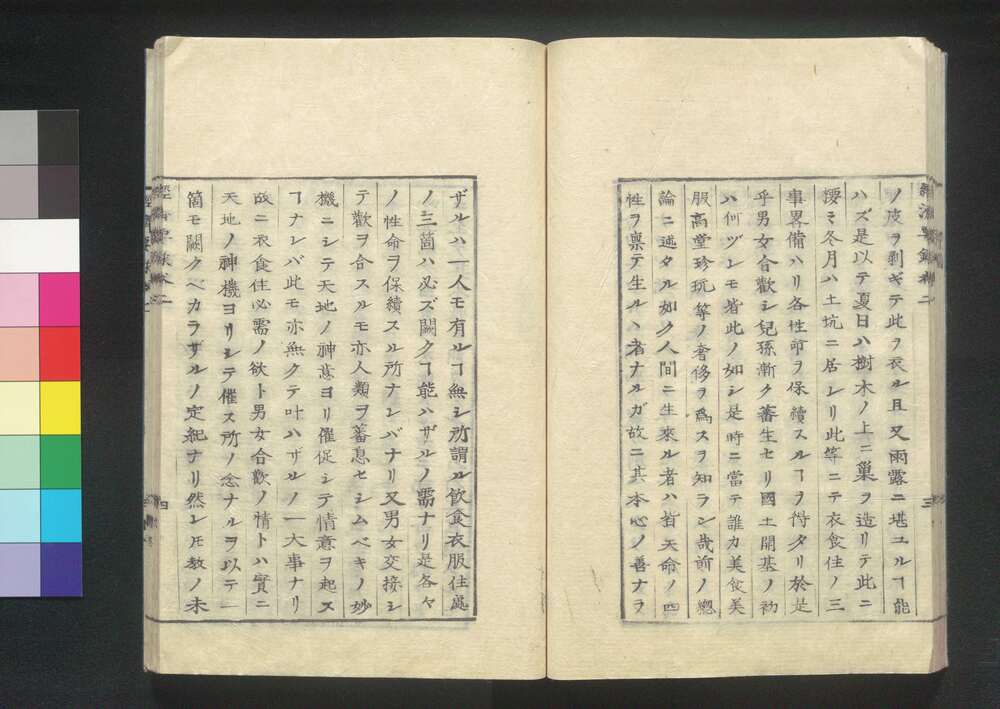 ノ皮ヲ剥ギテ此ヲ衣ル且又雨露ニ堪ユルヿ能
ハズ是以テ夏日ハ樹木ノ上ニ巢ヲ造リテ此ニ
棲ミ冬月ハ土坑ニ居レリ此等ニテ衣食住ノ三
事畧備ハリ各性命ヲ保續スルヿヲ得タリ於是
乎男女合歡シ兒孫漸ク蕃生セリ國土開基ノ初
ハ何ヅレモ皆此ノ如シ是時ニ當テ誰カ美食美
服高堂珍玩等ノ奢侈ヲ爲スヲ知ラン哉前ノ總
論ニ述タル如ク人間ニ生來ル者ハ皆天命ノ四
性ヲ禀テ生ルヽ者ナルガ故ニ其本心ノ善ナラ
三
ザルハ一人モ有ルヿ無シ所謂ル飲食衣服住處
ノ三箇ハ必ズ闕クヿ能ハザルノ需ナリ是各々
ノ性命ヲ保續スル所ナレバナリ又男女交接シ
テ歡ヲ合スルモ亦人類ヲ蕃息セシムベキノ妙
機ニシテ天地ノ神意ヨリ催促シテ情意ヲ起ス
ヿナレバ此モ亦無クテ叶ハザルノ一大事ナリ
故ニ衣食住必需ノ欲ト男女合歡ノ情トハ實ニ
天地ノ神機ヨリシテ催ス所ノ念ナルヲ以テ一
箇モ闕クベカラザルノ定紀ナリ然レ𪜈教ノ未
四